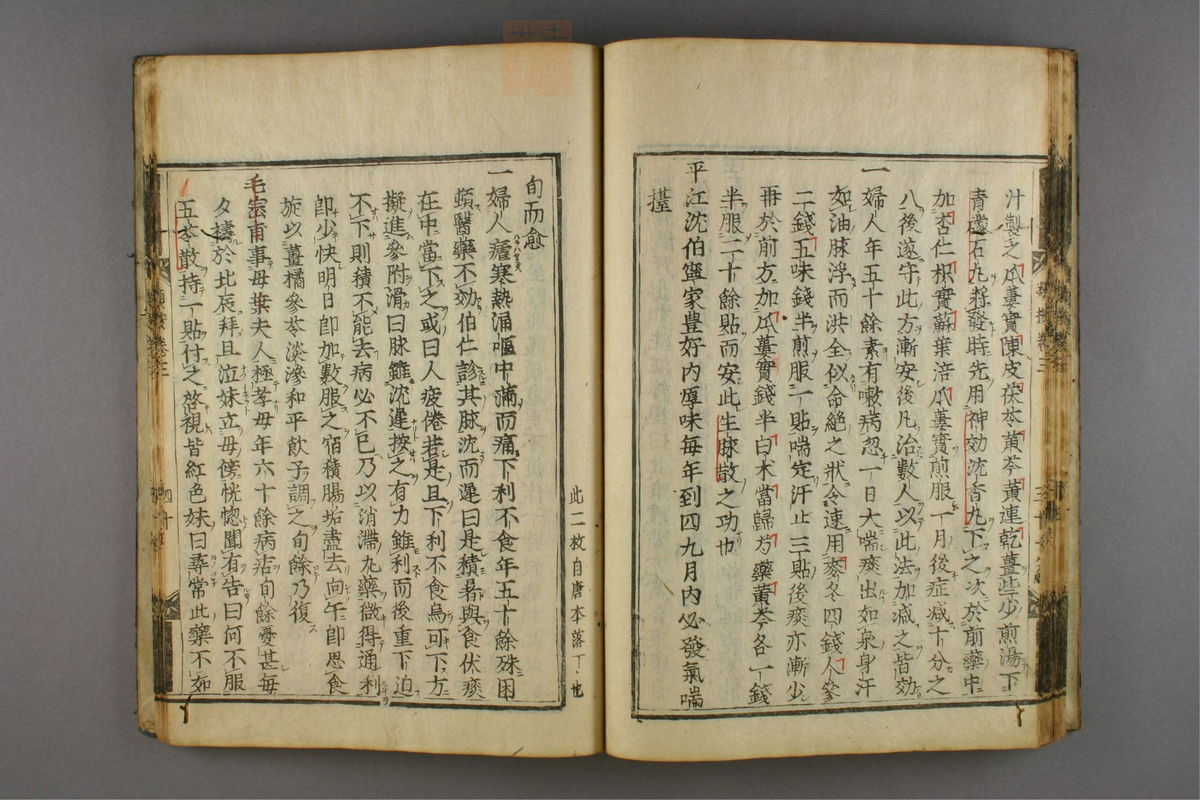 汁製之瓜蔞實陳皮茯苓黄芩黄連乾薑些少煎湯下
青礞石丸將發時先用神効沈香丸下之次於前藥中
加杏仁枳實蘇葉涪瓜蔞實煎服一月後症减十分之
八後遂守此方漸安後凡治數人以此法加减之皆効
一婦人年五十餘素有嗽病忽一日大喘痰出如泉身汗
如油脉浮而洪全似命絶之狀令速用麥冬四錢人參
二錢五味錢半煎服一貼喘定汗止三貼後痰亦漸少
再於前方加瓜蔞實錢半白术當歸芍藥黄芩各一錢
半服二十餘貼而安此生脉散之功也
平江沈伯寧家豊好内厚味每年到四九月内必發氣喘
此二枚自唐本落丁也
旬而愈
一婦人瘧寒熱涌嘔中滿而痛下利不食年五十餘殊困
頓醫藥不効伯仁診其脉沈而遲曰是積暑與食伏痰
在中當下之或曰人疲倦若是且下利不食烏可下方
擬進參附滑曰脉雖沈遲按之有力雖利而後重下迫
不下則積不能去病必不已乃以消滯丸藥微得通利
即少快明日即加數服之宿積腸垢盡去向午即思食
旋以薑橘參苓淡滲和平飲子調之旬餘乃復
毛宓甫事母葉夫人極孝母年六十餘病痁旬餘憂甚每
夕禱於北辰拜且泣妹立母傍恍惚聞有告曰何不服
五苓散持一貼付之啓視皆紅色妹曰尋常此藥不如